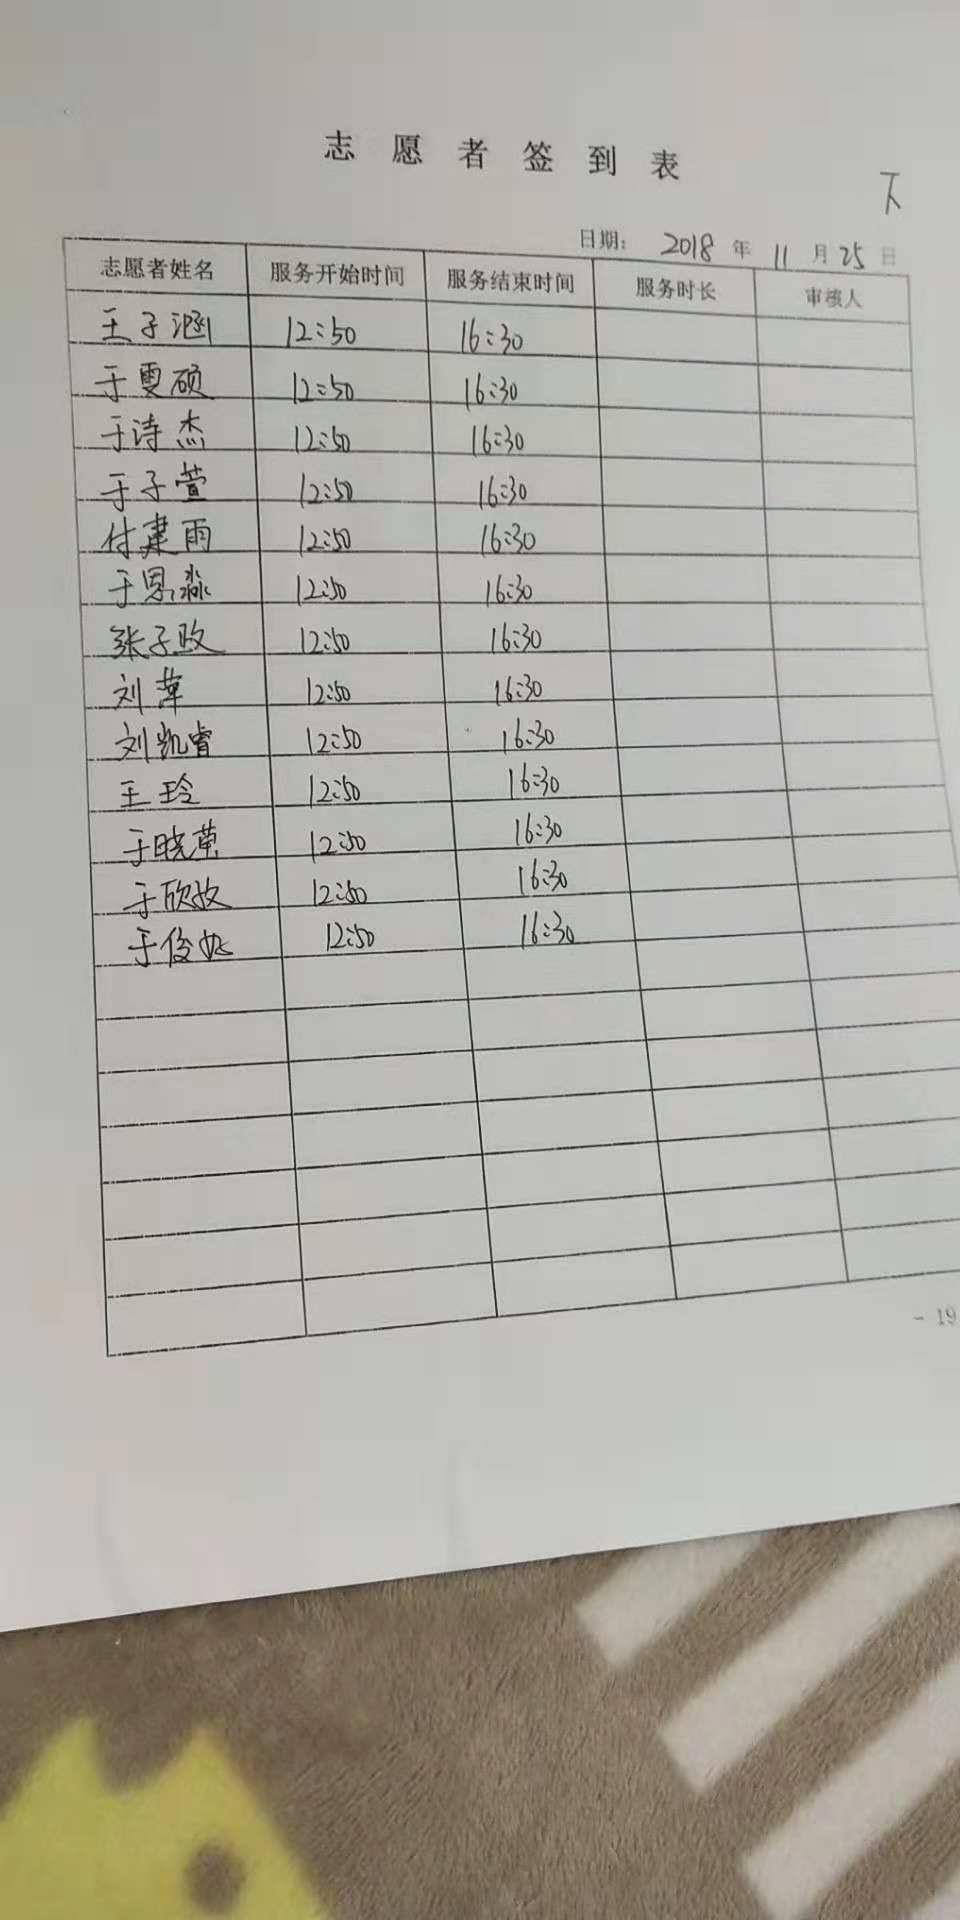 志愿者签到表
下
日期: 2018年11月25日
志愿者姓名 服务开始时间 服务结束时间 服务时长 审核人
王子涵 12:50 16:30
于雯硕 12:50 16:30
于诗杰 12:50 16:30
于子萱 12:50 16:30
付建雨 12:50 16:30
于恩淼 12:50 16:30
张子政 12:50 16:30
刘苹 12:50 16:30
刘凯睿 12:50 16:30
王玲 12:50 16:30
于晓 12:50 16:30
于欣 12:50 16:30
于俊 12:50 16:30
- 19